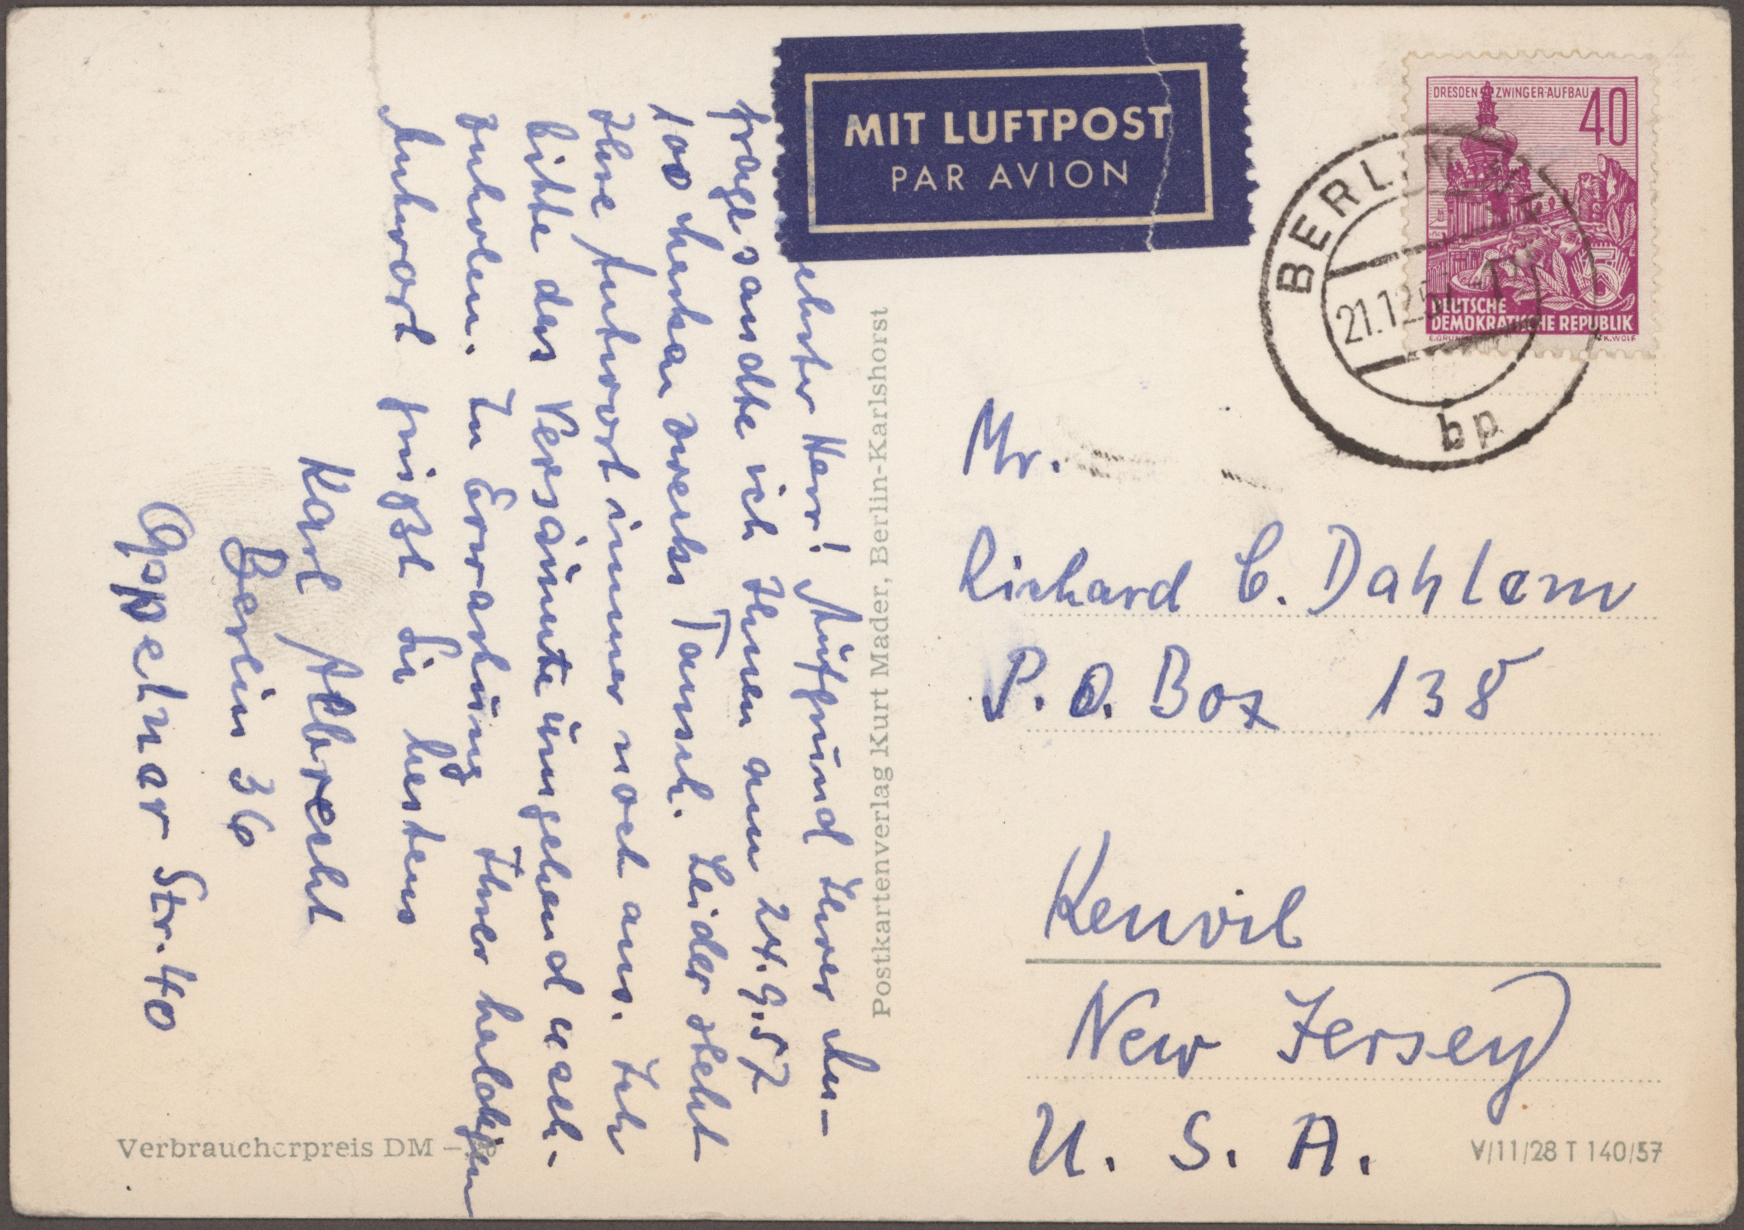 MIT LUFTPOST
PAR AVION
DRESDEN ZWINGER-AUFBAU
40
DEUTSCHE
DEMOKRATISCHE REPUBLIK
K.WOLF
BERLIN
21.12.5
bp
ehrter Herr! Aufgrund Ihrer An-
frage sandte ich Ihnen am 24.9.57
100 Marken zwecks Tausch. Leider steht
Ihre Antwort immer noch aus. Ich
bitte das Versäumte umgehend nach-
zuholen. In Erwartung Ihrer baldigen
Antwort grüßt Sie bestens
Karl Albrecht
Berlin 36
Oppelner Str. 40
Postkartenverlag Kurt Mader, Berlin-Karlshorst
Mr.
Richard C. Dahlem
P.O. Box 138
Kenvil
New Jersey
U. S. A.
Verbraucherpreis DM –
V/11/28 T 140/57